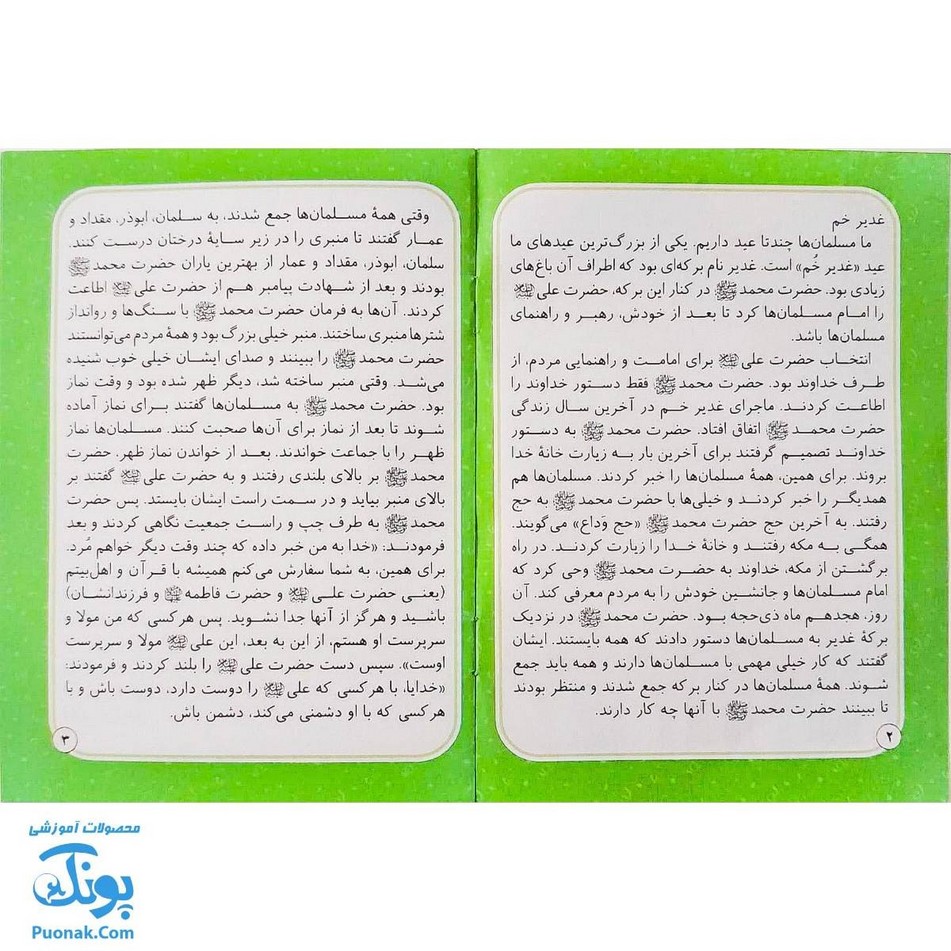 غدیر خم
ما مسلمان‌ها چندتا عید داریم. یکی از بزرگ‌ترین عیدهای ما
عید «غدیر خُم» است. غدیر نام برکه‌ای بود که اطراف آن باغ‌های
زیادی بود. حضرت محمد ﷺ در کنار این برکه، حضرت علی
را امام مسلمان‌ها کرد تا بعد از خودش، رهبر و راهنمای
مسلمان‌ها باشد.
انتخاب حضرت علی برای امامت و راهنمایی مردم، از
طرف خداوند بود. حضرت محمد ﷺ فقط دستور خداوند را
اطاعت کردند. ماجرای غدیر خم در آخرین سال زندگی
حضرت محمد ﷺ اتفاق افتاد. حضرت محمد ﷺ به دستور
خداوند تصمیم گرفتند برای آخرین بار به زیارت خانهٔ خدا
بروند. برای همین، همهٔ مسلمان‌ها را خبر کردند. مسلمان‌ها هم
همدیگر را خبر کردند و خیلی‌ها با حضرت محمد ﷺ به حج
رفتند. به آخرین حج حضرت محمد ﷺ «حج وَداع» می‌گویند.
همگی به مکه رفتند و خانهٔ خدا را زیارت کردند. در راه
برگشتن از مکه، خداوند به حضرت محمد ﷺ وحی کرد که
امام مسلمان‌ها و جانشین خودش را به مردم معرفی کند. آن
روز، هجدهم ماه ذی‌حجه بود. حضرت محمد ﷺ در نزدیک
برکهٔ غدیر به مسلمان‌ها دستور دادند که همه بایستند. ایشان
گفتند که کار خیلی مهمی با مسلمان‌ها دارند و همه باید جمع
شوند. همهٔ مسلمان‌ها در کنار برکه جمع شدند و منتظر بودند
تا ببینند حضرت محمد ﷺ با آنها چه کار دارند.
۲
وقتی همهٔ مسلمان‌ها جمع شدند، به سلمان، ابوذر، مقداد و
عمار گفتند تا منبری را در زیر سایهٔ درختان درست کنند.
سلمان، ابوذر، مقداد و عمار از بهترین یاران حضرت محمد ﷺ
بودند و بعد از شهادت پیامبر هم از حضرت علی اطاعت
کردند. آن‌ها به فرمان حضرت محمد ﷺ با سنگ‌ها و روانداز
شترها منبری ساختند. منبر خیلی بزرگ بود و همهٔ مردم می‌توانستند
حضرت محمد ﷺ را ببینند و صدای ایشان خیلی خوب شنیده
می‌شد. وقتی منبر ساخته شد، دیگر ظهر شده بود و وقت نماز
بود. حضرت محمد ﷺ به مسلمان‌ها گفتند برای نماز آماده
شوند تا بعد از نماز برای آن‌ها صحبت کنند. مسلمان‌ها نماز
ظهر را با جماعت خواندند. بعد از خواندن نماز ظهر. حضرت
محمد ﷺ بر بالای بلندی رفتند و به حضرت علی گفتند بر
بالای منبر بیاید و در سمت راست ایشان بایستد. پس حضرت
محمد ﷺ به طرف چپ و راست جمعیت نگاهی کردند و بعد
فرمودند: «خدا به من خبر داده که چند وقت دیگر خواهم مُرد.
برای همین، به شما سفارش می‌کنم همیشه با قرآن و اهل‌بیتم
(یعنی حضرت علی و حضرت فاطمه و فرزندانشان)
باشید و هرگز از آنها جدا نشوید. پس هرکسی که من مولا و
سرپرست او هستم، از این به بعد، این علی مولا و سرپرست
اوست». سپس دست حضرت علی را بلند کردند و فرمودند:
«خدایا، با هرکسی که علی را دوست دارد، دوست باش و با
هرکسی که با او دشمنی می‌کند، دشمن باش.
۳
محصولات آموزشی
پونک
Puonak.Com